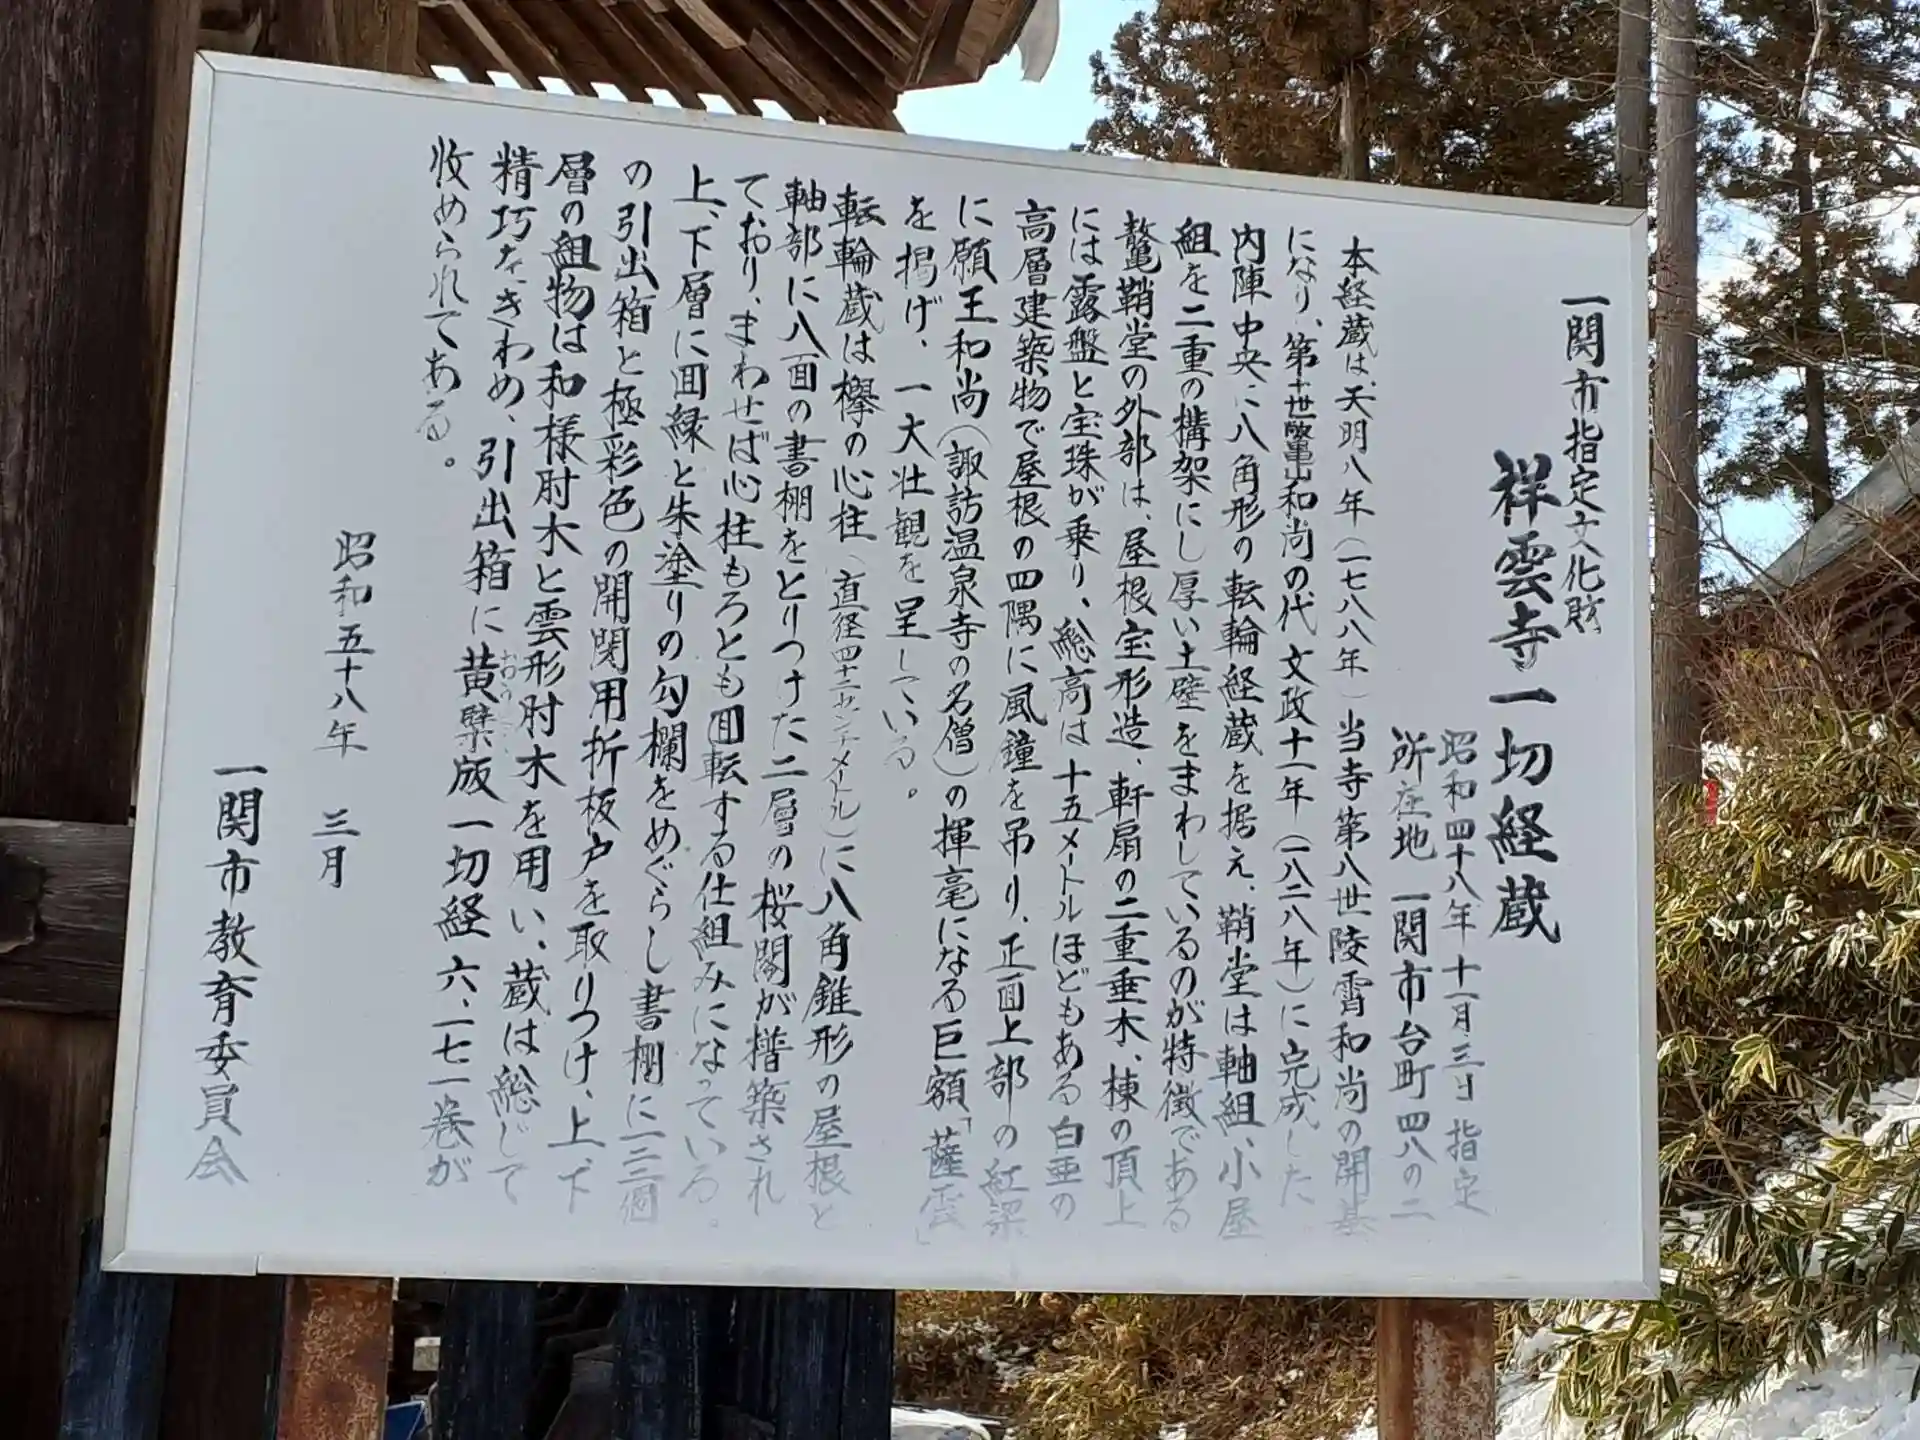 一関市指定文化財
祥雲寺一切経蔵
昭和四十八年十一月三日指定
所在地 一関市台町四八の二
本経蔵は、天明八年(一七八八年)当寺第八世陵霄和尚の開基
になり、第十世鼇山和尚の代文政十一年(一八二八年)に完成した
内陣中央に八角形の転輪経蔵を据え、鞘堂は軸組、小屋
組を二重の構架にし厚い土壁をまわしているのが特徴である
鼇鞘堂の外部は、屋根宝形造、軒扇の二重垂木、棟の頂上
には露盤と宝珠が乗り、総高は十五メートルほどもある白亜の
高層建築物で屋根の四隅に風鐘を吊り、正面上部の紅梁
に願王和尚(諏訪温泉寺の名僧)の揮毫になる巨額「薩雲」
を掲げ、一大壮観を呈している。
転輪蔵は欅の心柱(直径四十二センチメートル)に八角錐形の屋根と
軸部に八面の書棚をとりつけた二層の桜閣が楷築され
ており、まわせば心柱もろとも回転する仕組みになっている。
上、下層に回縁と朱塗りの勾欄をめぐらし書棚に二三個
の引出箱と極彩色の開閉用折板戸を取りつけ、上、下
層の組物は和様肘木と雲形肘木を用い、蔵は総じて
精巧をきわめ、引出箱に黄檗版一切経六、一七一巻が
收められてある。
昭和五十八年 三月
一関市教育委員会